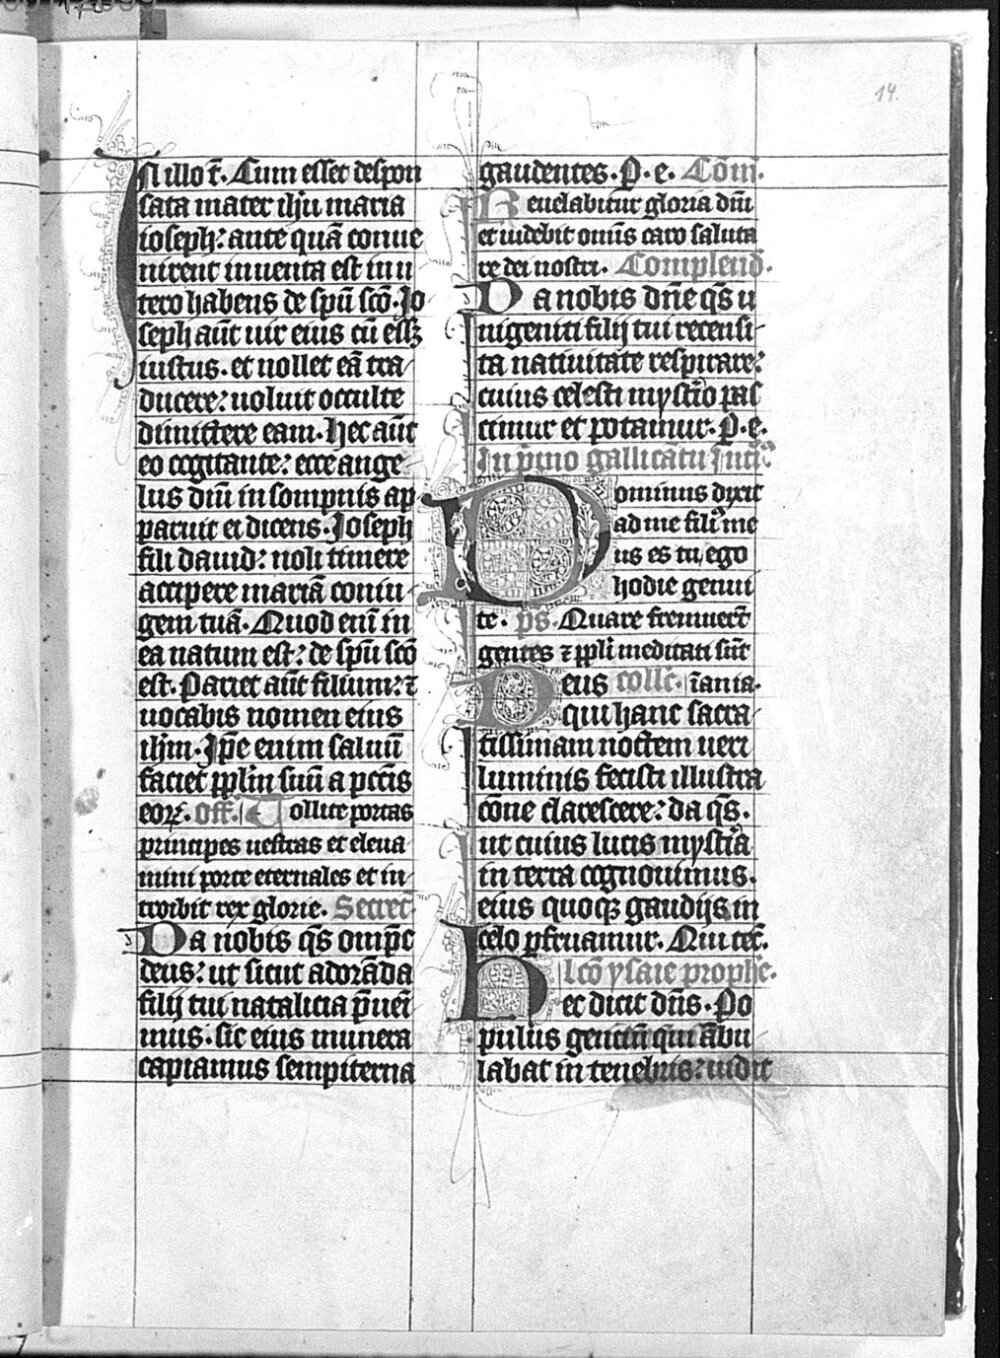 14.
In illo t̄. Cum esset despon
sata mater ih̄u maria
ioseph: ante quā conue
nirent inuenta est in u
tero habens de sp̄u sc̄o. Jo
seph aūt uir eius cū esset
iustus. et nollet eā tra
ducere: uoluit occulte
dimittere eam. Hec aūt
eo cogitante: ecce ange
lus dn̄i in sompnis ap
paruit ei dicens. Joseph
fili dauid: noli timere
accipere mariā coniu
gem tuā. Quod enī in
ea natum est: de sp̄u sc̄o
est. Pariet aūt filium: ⁊
uocabis nomen eius
ih̄m. Ip̄e enim saluū
faciet pp̄lm suū a pcc̄is
eoꝝ. Off. Tollite portas
principes uestras et eleua
mini porte eternales et in
troibit rex glorie. Secret̄
Da nobis q̄s omp̄s
deus: ut sicut adorāda
filij tui natalicia p̄ueī
mus. sic eius munera
capiamus sempiterna
gaudentes. P. e. Cōm̄.
Reuelabitur gloria dn̄i
et uidebit omīs caro saluta
re dei nostri. Complend̄.
Da nobis dn̄e q̄s u
nigeniti filij tui recensi
ta natiuitate respirare:
cuius celesti mysterio pas
cimur et potamur. P. e.
In p̄mo gallicātu Intr̄.
Dominus dixit
ad me filiꝰ me
us es tu ego
hodie genui
te. p̄s. Quare fremuer̄t
gentes ⁊ pp̄li meditati sūt
Deus coll̄c. īania.
qui hanc sacra
tissimam noctem ueri
luminis fecisti illustra
cōne clarescere: da q̄s.
ut cuius lucis mysteria
in terra cognouimus.
eius quoqꝫ gaudijs in
celo p̄fruamur. Qui tec̄.
Lc̄o ysaie prophe.
Hec dicit dn̄s. Po
pulus genciū qui ābu
labat in tenebris: uidit